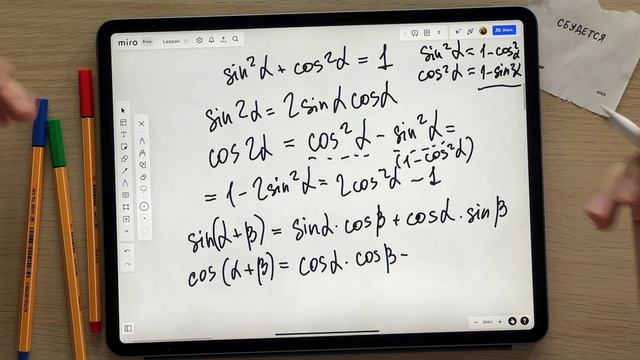 miro free Lesson
Share
sin²α + cos²α = 1
sin²α = 1-cos²α
cos²α = 1-sin²α
sin2α = 2sinα cosα
cos2α = cos²α - sin²α =
(1-cos²α)
= 1-2sin²α = 2cos²α - 1
sin(α+β) = sinα·cosβ + cosα·sinβ
cos(α+β) = cosα·cosβ -
СБУДЕТСЯ